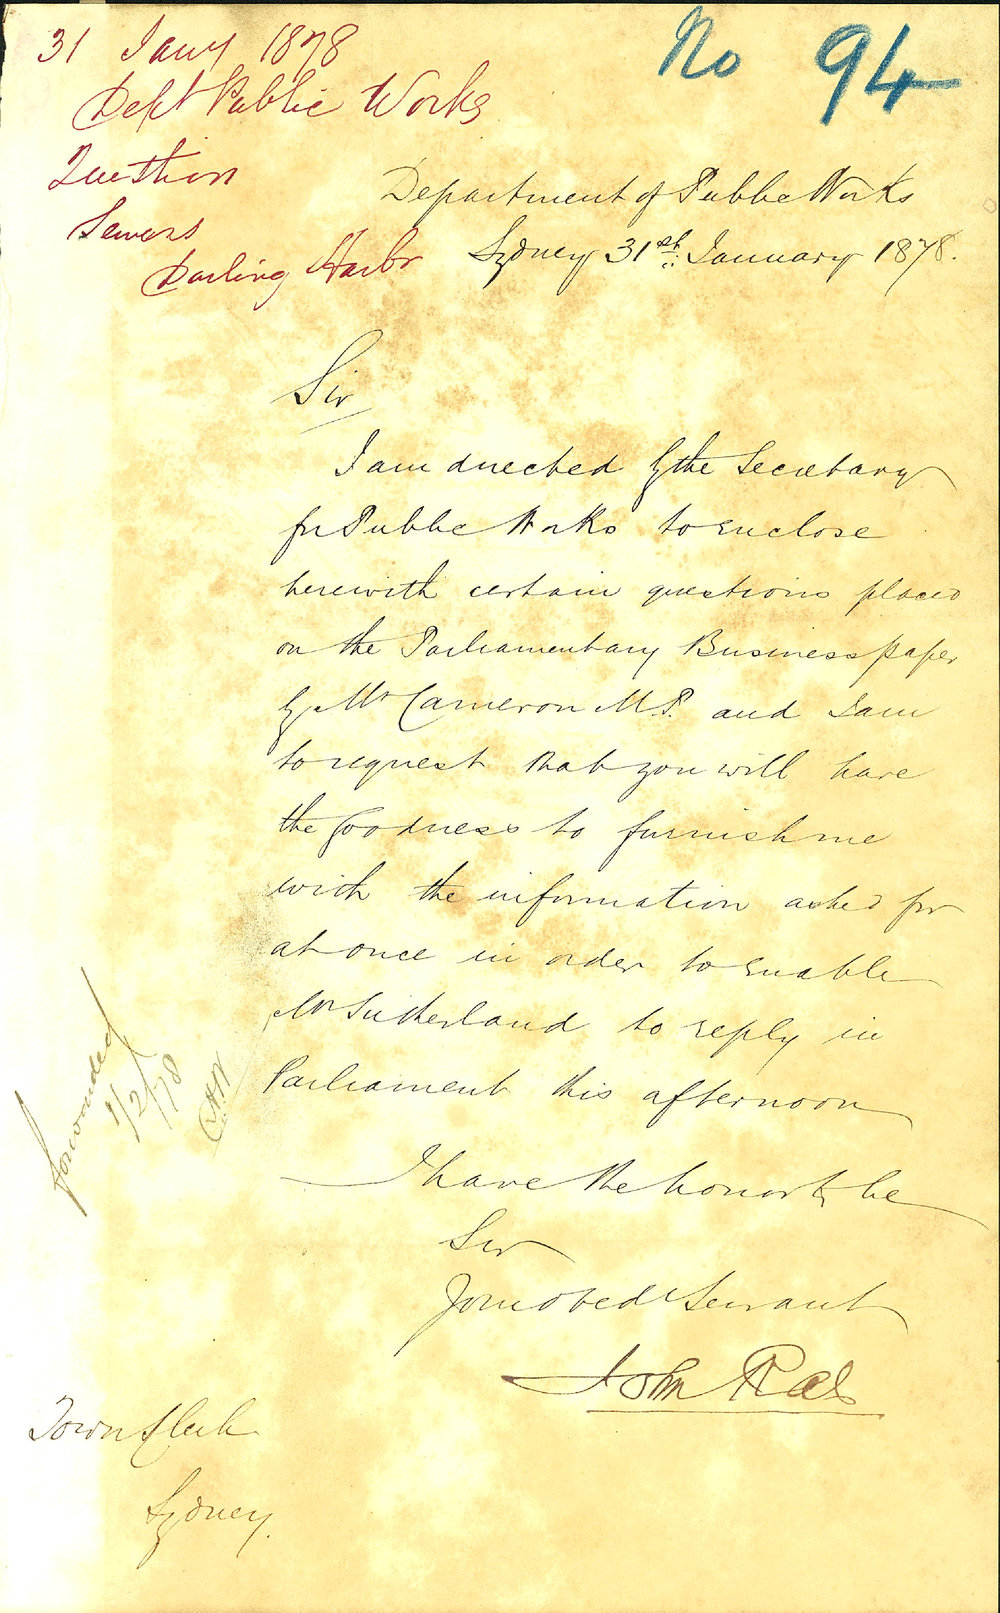 31 Jany 1878
Dept Public Works
Question
Sewers
Darling Harbr
No 94
Department of Public Works
Sydney 31st January 1878.
Sir
I am directed by the Secretary
for Public Works to enclose
herewith certain questions placed
on the Parliamentary Business paper
by Mr Cameron M.P. and I am
to request that you will have
the goodness to furnish me
with the information asked for
at once in order to enable
Mr Sutherland to reply in
Parliament this afternoon
I have the honor to be
Sir
Your obedt Servant
John Rae
Town Clerk
Sydney.
Forwarded
1/2/78